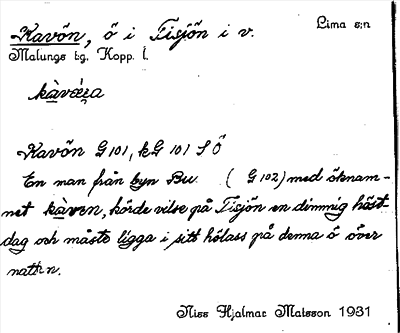 Kavön, ö i Tisjön i v. Lima s:n
Malungs tg. Kopp. l.
Kavön G 101, kG 101 SÖ
En man från byn Bu (G 102) med öknam-
net kàven, körde vilse på Tisjön en dimmig höst
dag och måste ligga i sitt hölass på denna ö över
natt n.
Niss Hjalmar Matsson 1931